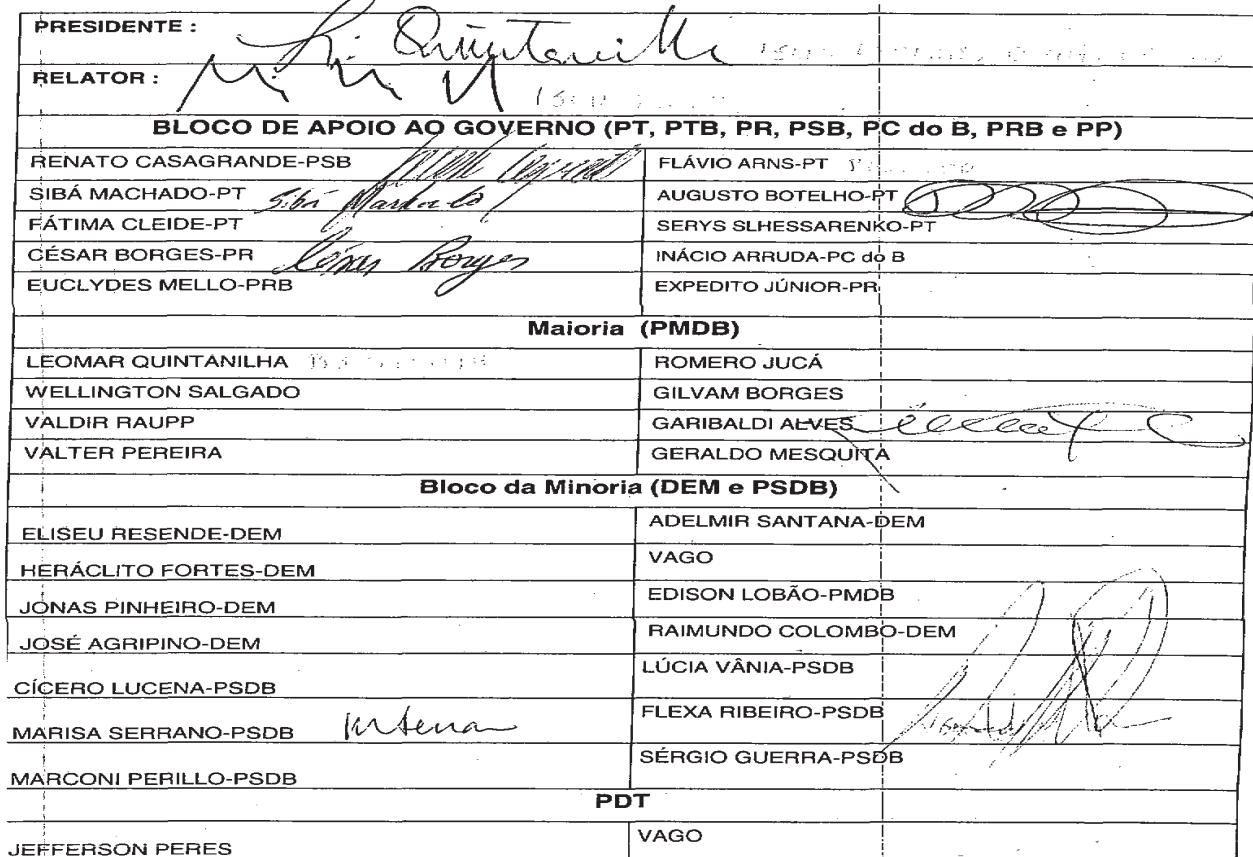 PRESIDENTE : Quintanilha
RELATOR :
BLOCO DE APOIO AO GOVERNO (PT, PTB, PR, PSB, PC do B, PRB e PP)
RENATO CASAGRANDE-PSB FLÁVIO ARNS-PT
SIBÁ MACHADO-PT Sibá Machado AUGUSTO BOTELHO-PT
FÁTIMA CLEIDE-PT SERYS SLHESSARENKO-PT
CÉSAR BORGES-PR César Borges INÁCIO ARRUDA-PC do B
EUCLYDES MELLO-PRB EXPEDITO JÚNIOR-PR
Maioria (PMDB)
LEOMAR QUINTANILHA ROMERO JUCÁ
WELLINGTON SALGADO GILVAM BORGES
VALDIR RAUPP GARIBALDI ALVES
VALTER PEREIRA GERALDO MESQUITA
Bloco da Minoria (DEM e PSDB)
ELISEU RESENDE-DEM ADELMIR SANTANA-DEM
HERÁCLITO FORTES-DEM VAGO
JONAS PINHEIRO-DEM EDISON LOBÃO-PMDB
JOSÉ AGRIPINO-DEM RAIMUNDO COLOMBO-DEM
CÍCERO LUCENA-PSDB LÚCIA VÂNIA-PSDB
MARISA SERRANO-PSDB FLEXA RIBEIRO-PSDB
MARCONI PERILLO-PSDB SÉRGIO GUERRA-PSDB
PDT
JEFFERSON PERES VAGO